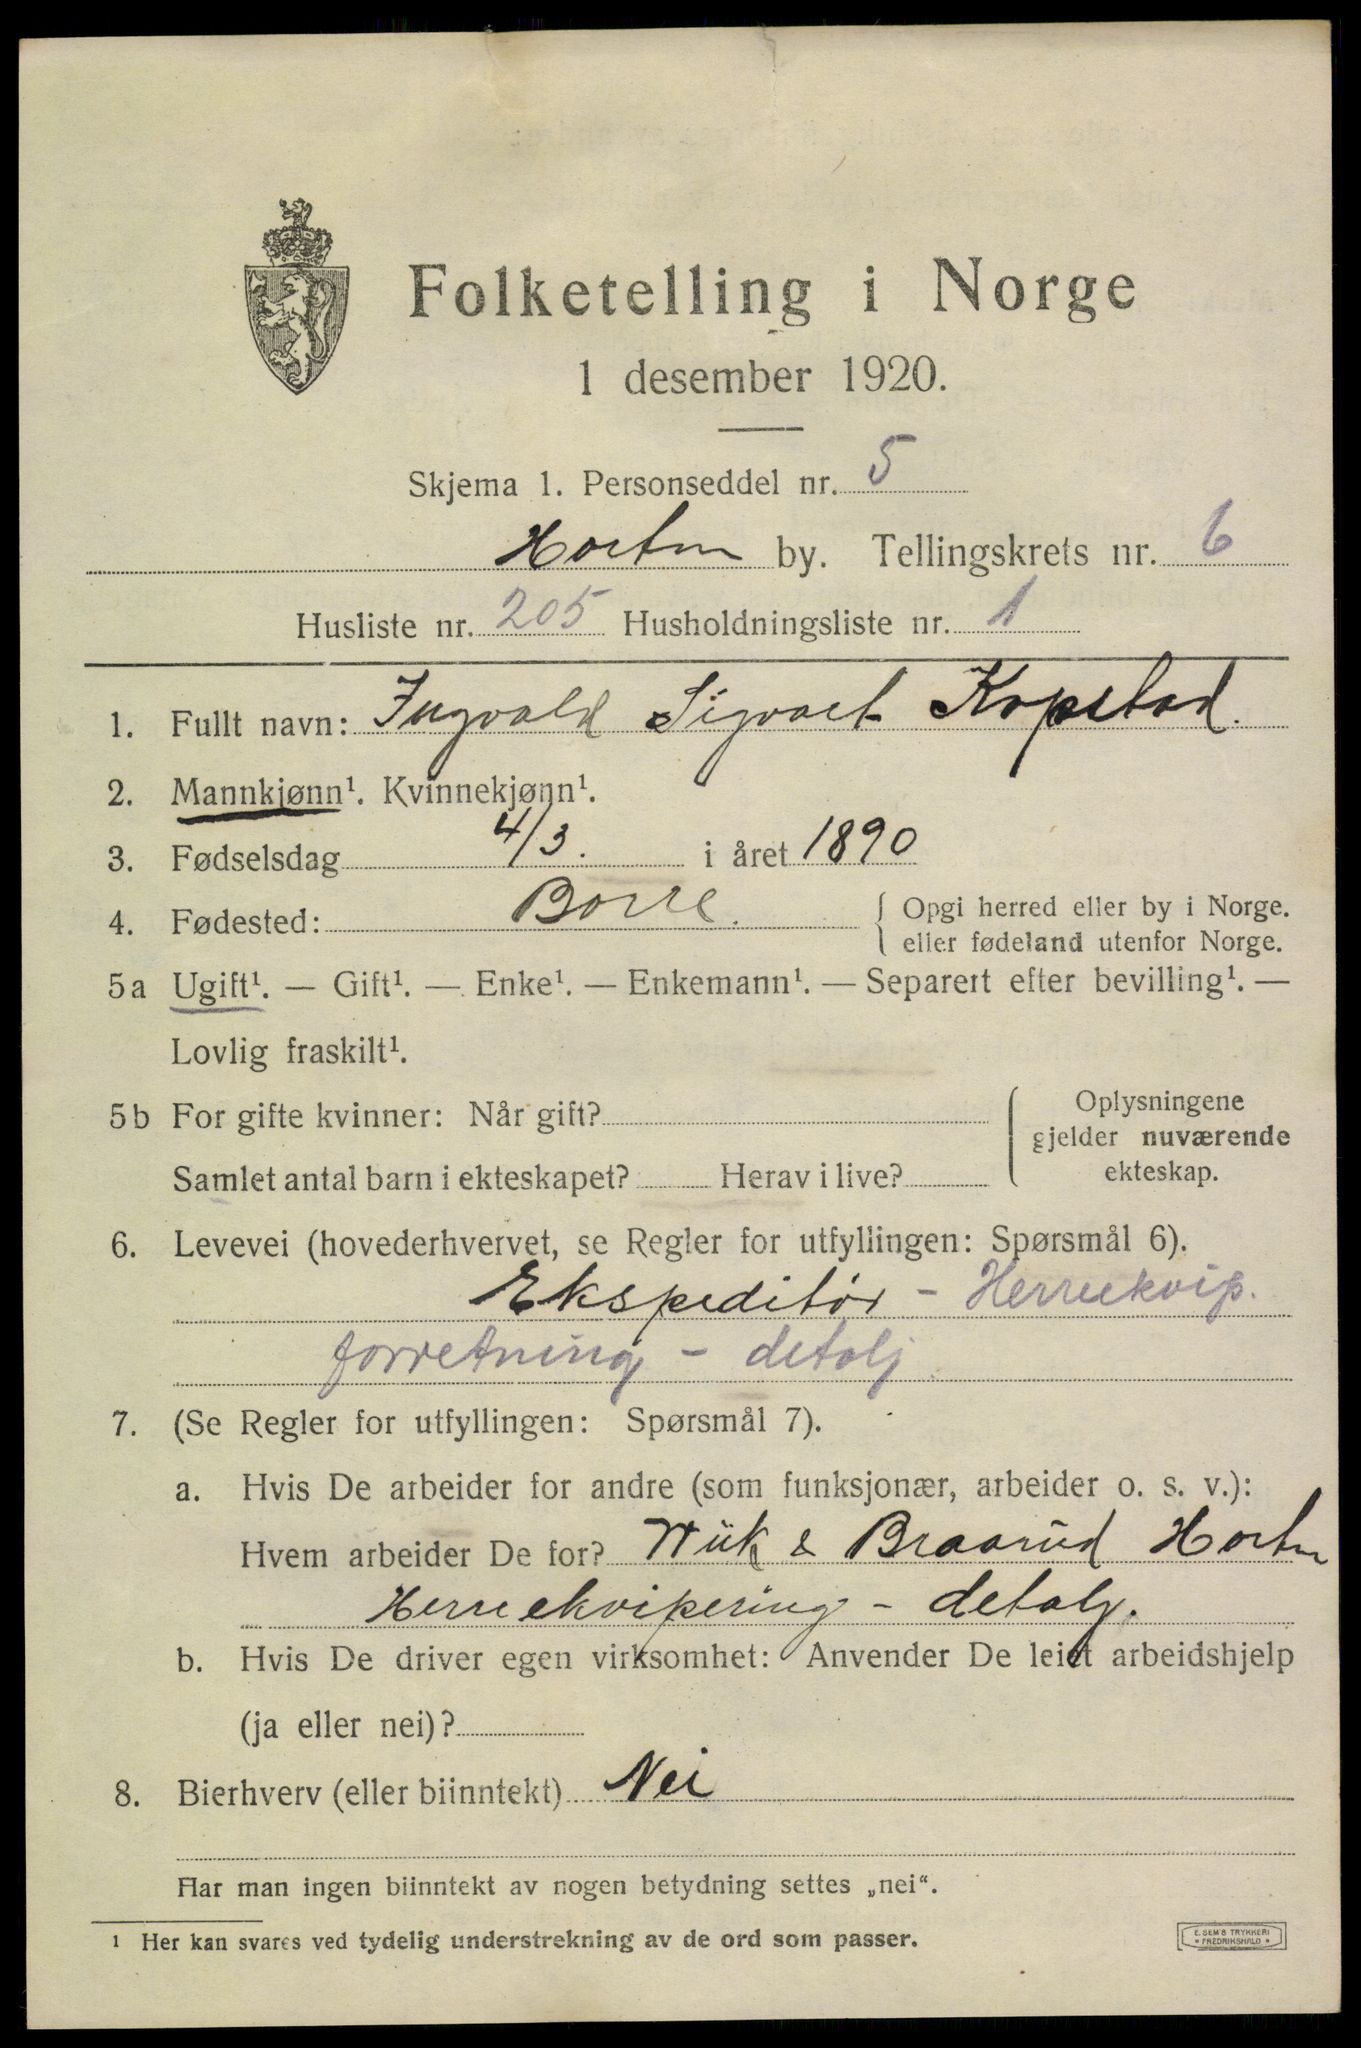 Folketelling i Norge
1 desember 1920.
Skjema 1. Personseddel nr. 5
Horten by. Tellingskrets nr. 6
Husliste nr. 205 Husholdningsliste nr. 1
1. Fullt navn: Ingvald Sigvart Kopstad.
2. Mannkjønn¹. Kvinnekjønn¹.
3. Fødselsdag 4/3. i året 1890
4. Fødested: Borre. { Opgi herred eller by i Norge.
eller fødeland utenfor Norge.
5a Ugift¹. — Gift¹. — Enke¹. — Enkemann¹. — Separert efter bevilling¹. —
Lovlig fraskilt¹.
5b For gifte kvinner: Når gift? Oplysningene
gjelder nuværende
Samlet antal barn i ekteskapet? Herav i live? ekteskap.
6. Levevei (hovederhvervet, se Regler for utfyllingen: Spørsmål 6).
Ekspeditør - Herreekvip.
forretning - detalj
7. (Se Regler for utfyllingen: Spørsmål 7).
a. Hvis De arbeider for andre (som funksjonær, arbeider o. s. v.):
Hvem arbeider De for? Wiik & Braarud Horten
Herreekvipering - detalj.
b. Hvis De driver egen virksomhet: Anvender De leiet arbeidshjelp
(ja eller nei)?
8. Bierhverv (eller biinntekt) Nei
Har man ingen biinntekt av nogen betydning settes „nei“.
¹ Her kan svares ved tydelig understrekning av de ord som passer.
E. SEM'S TRYKKERI
* FREDRIKSHALD *